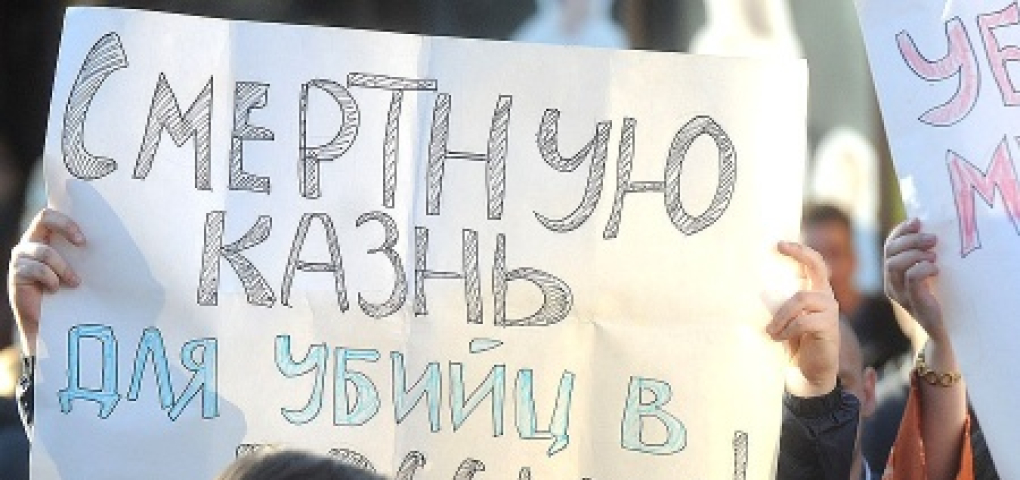 СМЕРТНУЮ
КАЗНЬ
ДЛЯ УБИЙЦ В